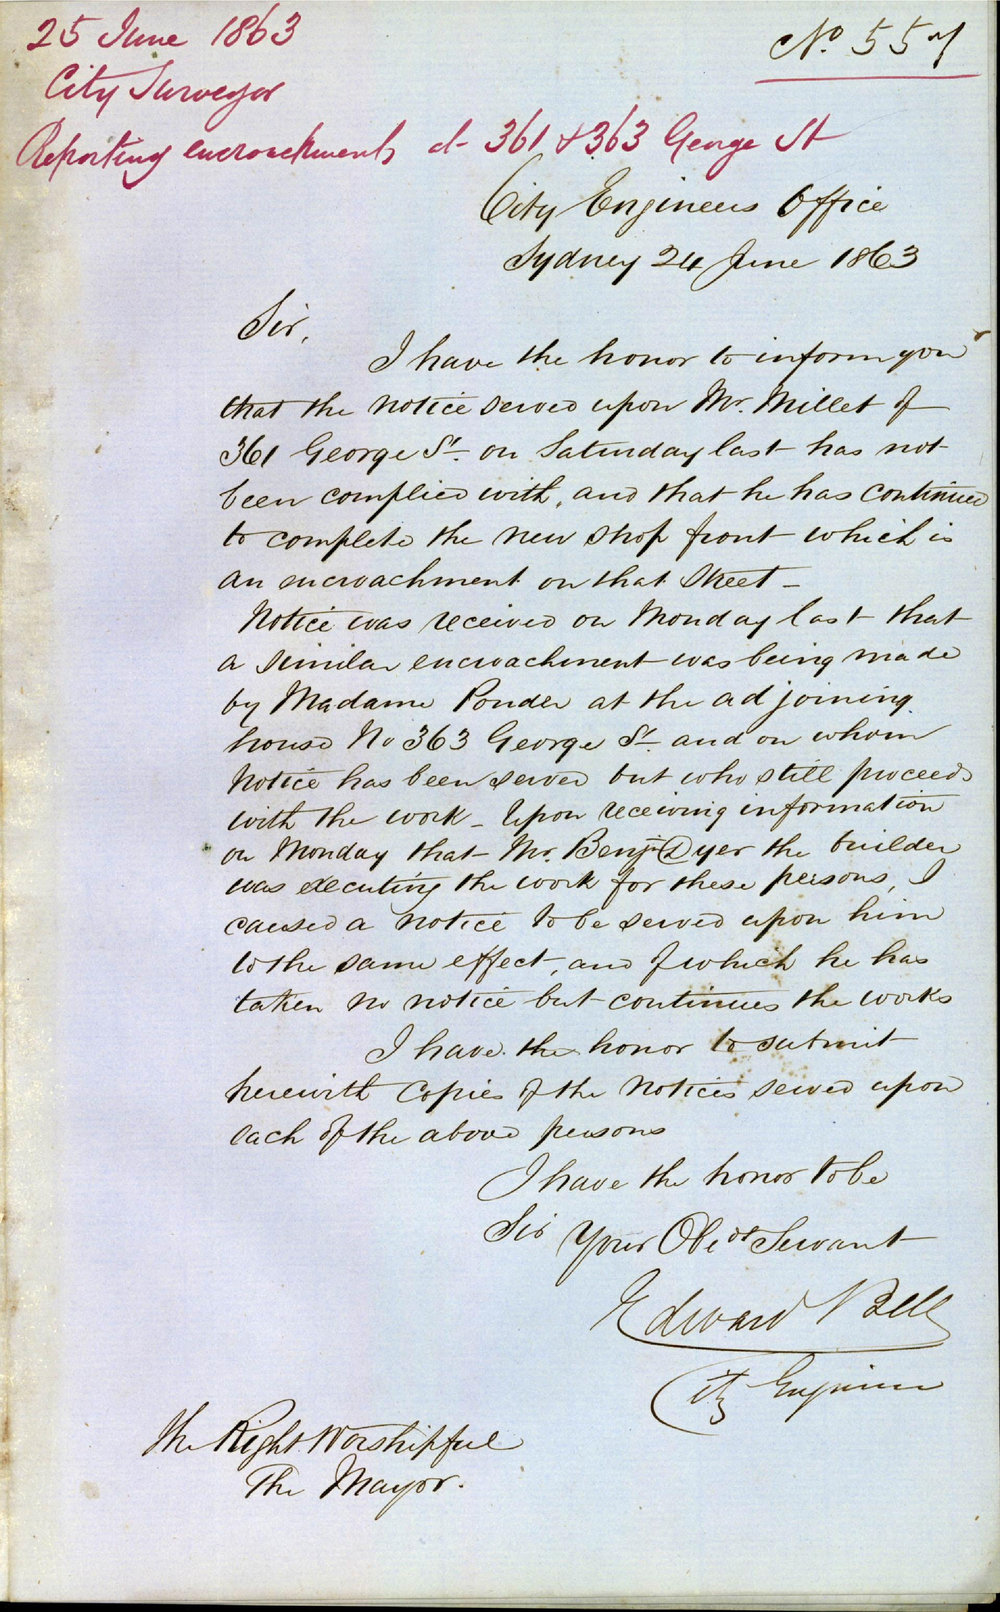 25 June 1863
No. 557
City Surveyor
Reporting encroachments at 361 & 363 George St
City Engineers Office
Sydney 24 June 1863
Sir,
I have the honor to inform you
that the notice served upon Mr. Millet of
361 George St. on Saturday last has not
been complied with, and that he has continued
to complete the new shop front which is
an encroachment on that Street -
Notice was received on Monday last that
a similar encroachment was being made
by Madame Ponder at the adjoining
house No 363 George St. and on whom
Notice has been served but who still proceeds
with the work - Upon receiving information
on Monday that Mr. Benjn Dyer the builder
was executing the work for these persons, I
caused a notice to be served upon him
to the same effect, and of which he has
taken no notice but continues the works
I have the honor to submit
herewith Copies of the Notices served upon
each of the above persons
I have the honor to be
Sir Your Obedt Servant
Edward Bell
City Engineer
The Right Worshipful
The Mayor.